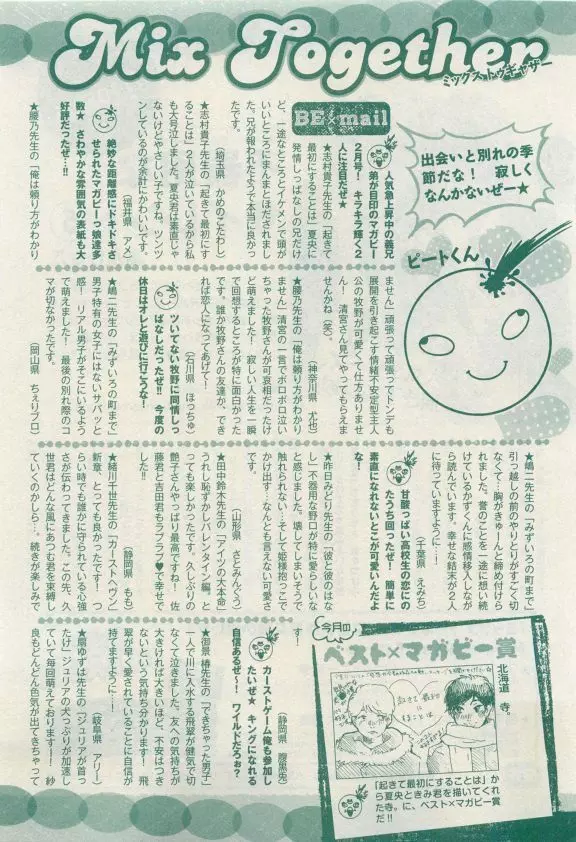 Mix Together
ミックス トゥギャザー
出会いと別れの季
節だな! 寂しく
なんかないぜー★
ピートくん
BE×mail
人気急上昇中の義兄
弟が目印のマガビー
2月号! キラキラ輝く2
人に注目だぜ★
★志村貴子先生の「起きて
最初にすることは」夏央に
発情しっぱなしの兄だけ
ど、一途なところとイケメンで頭が
いいところにまんまとほだされまし
た。兄が報われたようで本当に良かっ
たです。
(埼玉県 かめのこだわし)
★志村貴子先生の「起きて最初にす
ることは」2人が泣いているから私
も大号泣しました。夏央君は素直じゃ
ないけどやさしい子ですね。ツンツ
ンしているのが余計にかわいいです。
(福井県 アメ)
絶妙な距離感にドキドキさ
せられたマガビーっ娘達多
数★ さわやかな雰囲気の表紙も大
好評だったぜ…!!
★腰乃先生の「俺は頼り方がわかり
ません」頑張って頑張ってトンデモ
展開を引き起こす情緒不安定型主人
公の牧野が可愛くて仕方ありませ
ん! 清宮さん見てやってもらえま
せんかね(笑)。
(神奈川県 尤也)
★腰乃先生の「俺は頼り方がわかり
ません」清宮の一言でボロボロ泣い
ちゃった牧野さんが可哀相だったけ
ど萌えました! 寂しい人生を一瞬
で回想するところが特に面白かった
です。誰か牧野さんの友達か、でき
れば恋人になってあげて!
(石川県 ほっちゅ)
ツいてない牧野に同情しっ
ぱなしだったぜ!! 今度の
休日はオレと遊びに行こうな!
★嶋二先生の「みずいろの町まで」
男子特有の女子にはないサバッと
感! リアル男子がそこにいるよう
で萌えました! 最後の別れ際のコ
マが切なかったです。
(岡山県 ちぇりブロ)
★嶋二先生の「みずいろの町まで」
引っ越しの前のやりとりがすごく切
なくて…胸がきゅーんと締め付けら
れました。誉のことを一途に想い続
けているかずくんに感情移入しなが
ら読んでいます。幸せな結末が2人
に待っていますように…!
(千葉県 えみち)
甘酸っぱい高校生の恋にの
たうち回ったぜ! 簡単に
素直になれないとこが可愛いんだよ
な!
★昨日みどり先生の「彼と彼のはな
し」不器用な野口が特に愛らしいな
と感じました。壊してしまいそうで
触れられない…そして姫様抱っこで
かけ出す…なんとも言えない可愛さ
です。
(山形県 さとみんくう)
★田中鈴木先生の「アイツの大本命」
うれし恥ずかしバレンタイン編、と
っても楽しかったです。久しぶりの
艶子さんやっぱり最高ですね! 佐
藤君と吉田君もラブラブ♥で幸せで
した!!
(静岡県 もも)
★緒川千世先生の「カーストヘヴン」
新章、とっても良かったです! つ
らい時でも誰かに守られている心強
さが伝わってきました。この先、久
世はどんな風にあつむ君を束縛し
ていくのかしら…。続きが楽しみで
す!
(静岡県 腹黒先)
カーストゲーム俺も参加し
たいぜ★ キングになれる
自信あるぜ〜! ワイルドだろぉ?
★御景椿先生の「できちゃった男子」
一人で川に入水する飛翠が健気で切
なくて泣きました。友への気持ちが
大きければ大きいほど、不安はつき
ないという気持ち分かります! 飛
翠が早く愛されていることに自信が
持てますように…!
(岐阜県 アリー)
★扇ゆずは先生の「ジュリアが首っ
たけ」ジュリアの犬っぷりが加速し
ていて毎回萌えております! 紗
良もどんどん色気が出てきちゃって
今月の
ベスト×マガビー賞
北海道 寺。
起きて最初に
することは
「起きて最初にすることは」か
ら夏央ときみ君を描いてくれ
た寺。に、ベスト×マガビー賞
だ!!